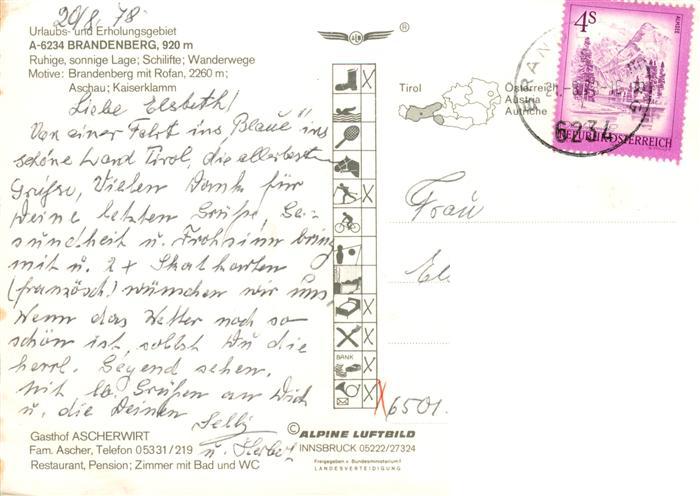 20/8. 78
Urlaubs- und Erholungsgebiet
A-6234 BRANDENBERG, 920 m
Ruhige, sonnige Lage; Schilifte; Wanderwege
Motive: Brandenberg mit Rofan, 2260 m;
Aschau; Kaiserklamm
Liebe Elsbeth!
Von einer Fahrt ins "Blaue" ins
schöne Land Tirol, die allerbesten
Grüße, Vielen Dank für
Deine letzten Grüße, Ge-
sundheit u. Frohsinn bring
mit u. 2 x Skatkarten
(französch.) wünschen wir uns,
Wenn das Wetter noch so
schön ist, sollst Du die
herrl. Gegend sehen.
Mit lb. Grüßen an Dich
u. die Deinen
u. Herbert
Gasthof ASCHERWIRT
Fam. Ascher, Telefon 05331/219
Restaurant, Pension; Zimmer mit Bad und WC
®
BANK
Tirol
Österreich
Austria
Autriche
4S
ALMSEE
REPUBLIK ÖSTERREICH
6234
Frau
El
6501
© ALPINE LUFTBILD
INNSBRUCK 05222/27324
Freigegeben v. Bundesministerium f.
LANDESVERTEIDIGUNG